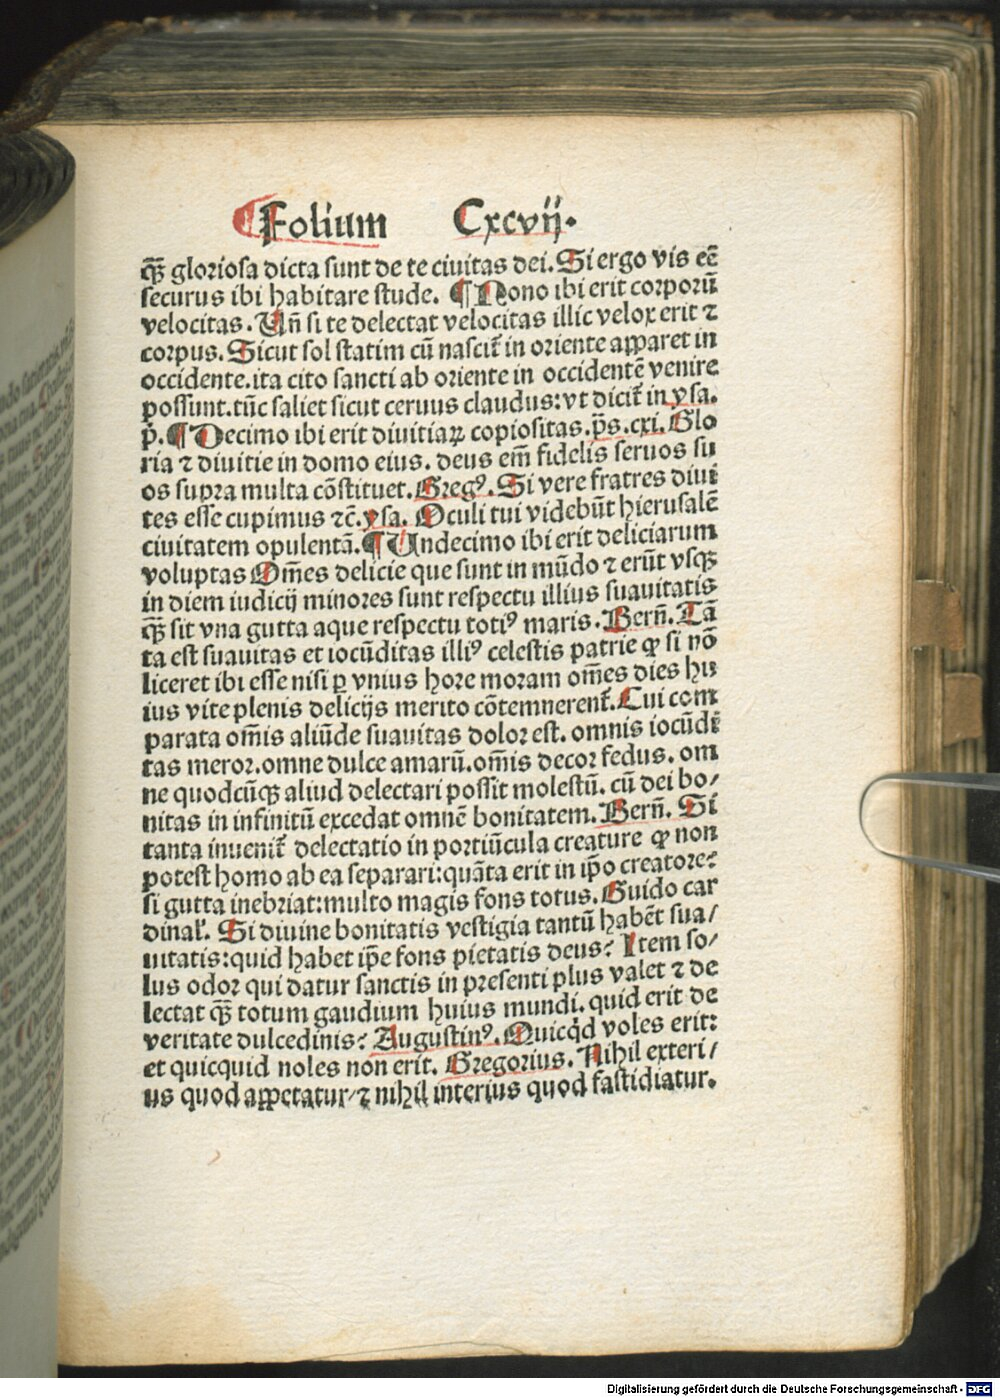 ¶Folium Cxcvij.
qꝫ̃ gloriosa dicta sunt de te ciuitas dei. Si ergo vis eē̃
securus ibi habitare stude. ¶Nono ibi erit corporū
velocitas. Uñ si te delectat velocitas illic velox erit ⁊
corpus. Sicut sol statim cū nascit̃ in oriente apparet in
occidente. ita cito sancti ab oriente in occidentē venire
possunt. tūc saliet sicut ceruus claudus: vt dicit̃ in ysa.
p̃. ¶Decimo ibi erit diuitiaꝝ copiositas. p̄s. cxi. Glo
ria ⁊ diuitie in domo eius. deus em̄ fidelis seruos su
os supra multa cōstituet. Gregꝰ. Si vere fratres diui
tes esse cupimus ⁊c̄. ysa. Oculi tui videbūt hierusalē
ciuitatem opulentā. ¶Undecimo ibi erit deliciarum
voluptas Om̄es delicie que sunt in mūdo ⁊ erūt vsqꝫ
in diem iudicij minores sunt respectu illius suauitatis
qꝫ̃ sit vna gutta aque respectu totiꝰ maris. Berñ. Tā
ta est suauitas et iocūditas illiꝰ celestis patrie ꝙ si nō
liceret ibi esse nisi ꝑ vnius hore moram om̄es dies hu
ius vite plenis delicijs merito cōtemnerent̃. Cui com
parata om̄is aliūde suauitas dolor est. omnis iocūdi
tas meror. omne dulce amarū. om̄is decor fedus. om
ne quodcūqꝫ aliud delectari possit molestū. cū dei bo/
nitas in infinitū excedat omnē bonitatem. Berñ. Si
tanta inuenit̃ delectatio in portiūcula creature ꝙ non
potest homo ab ea separari: quāta erit in ip̄o creatore?
si gutta inebriat: multo magis fons totus. Guido car
dinal̃. Si diuine bonitatis vestigia tantū habēt sua/
uitatis: quid habet ip̄e fons pietatis deus? Item so/
lus odor qui datur sanctis in presenti plus valet ⁊ de
lectat qꝫ̃ totum gaudium huius mundi. quid erit de
veritate dulcedinis? Augustinꝰ. Quicq̇d voles erit:
et quicquid noles non erit. Gregorius. Nihil exteri/
us quod appetatur/ ⁊ nihil interius quod fastidiatur.
Digitalisierung gefördert durch die Deutsche Forschungsgemeinschaft - DFG